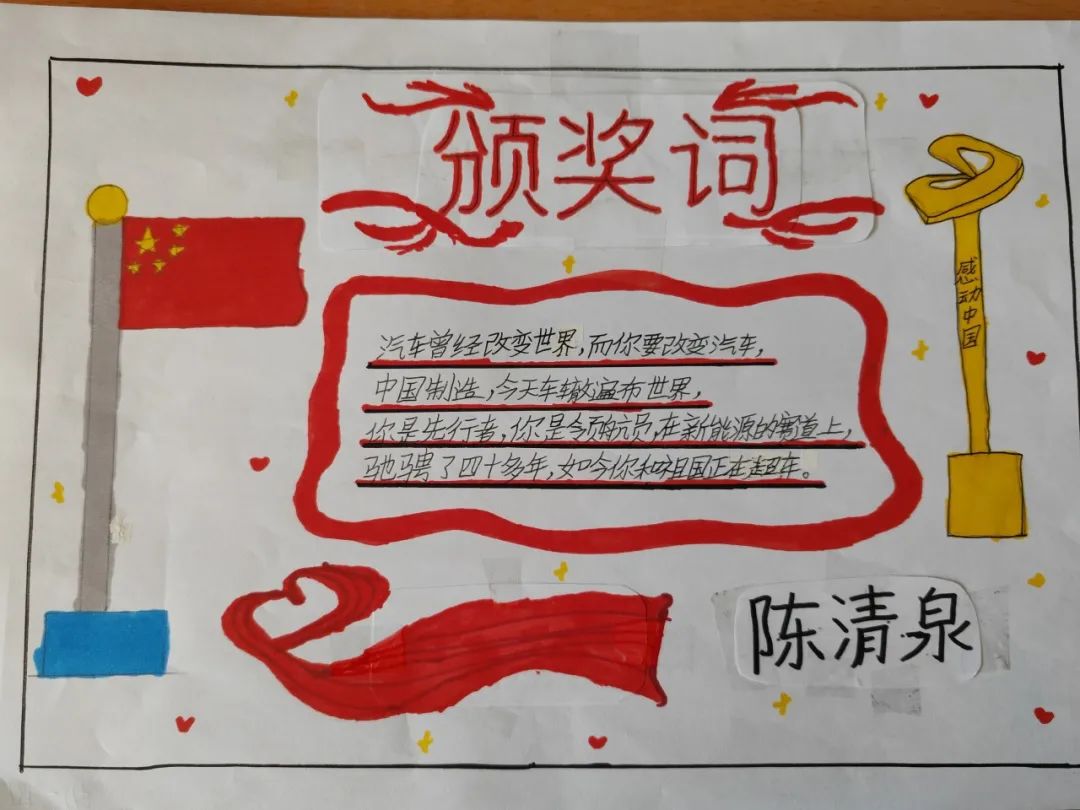 颁奖词
感动中国
汽车曾经改变世界,而你要改变汽车,
中国制造,今天车辙遍布世界,
你是先行者,你是领航员,在新能源的赛道上,
驰骋了四十多年,如今你和祖国正在超车。
陈清泉